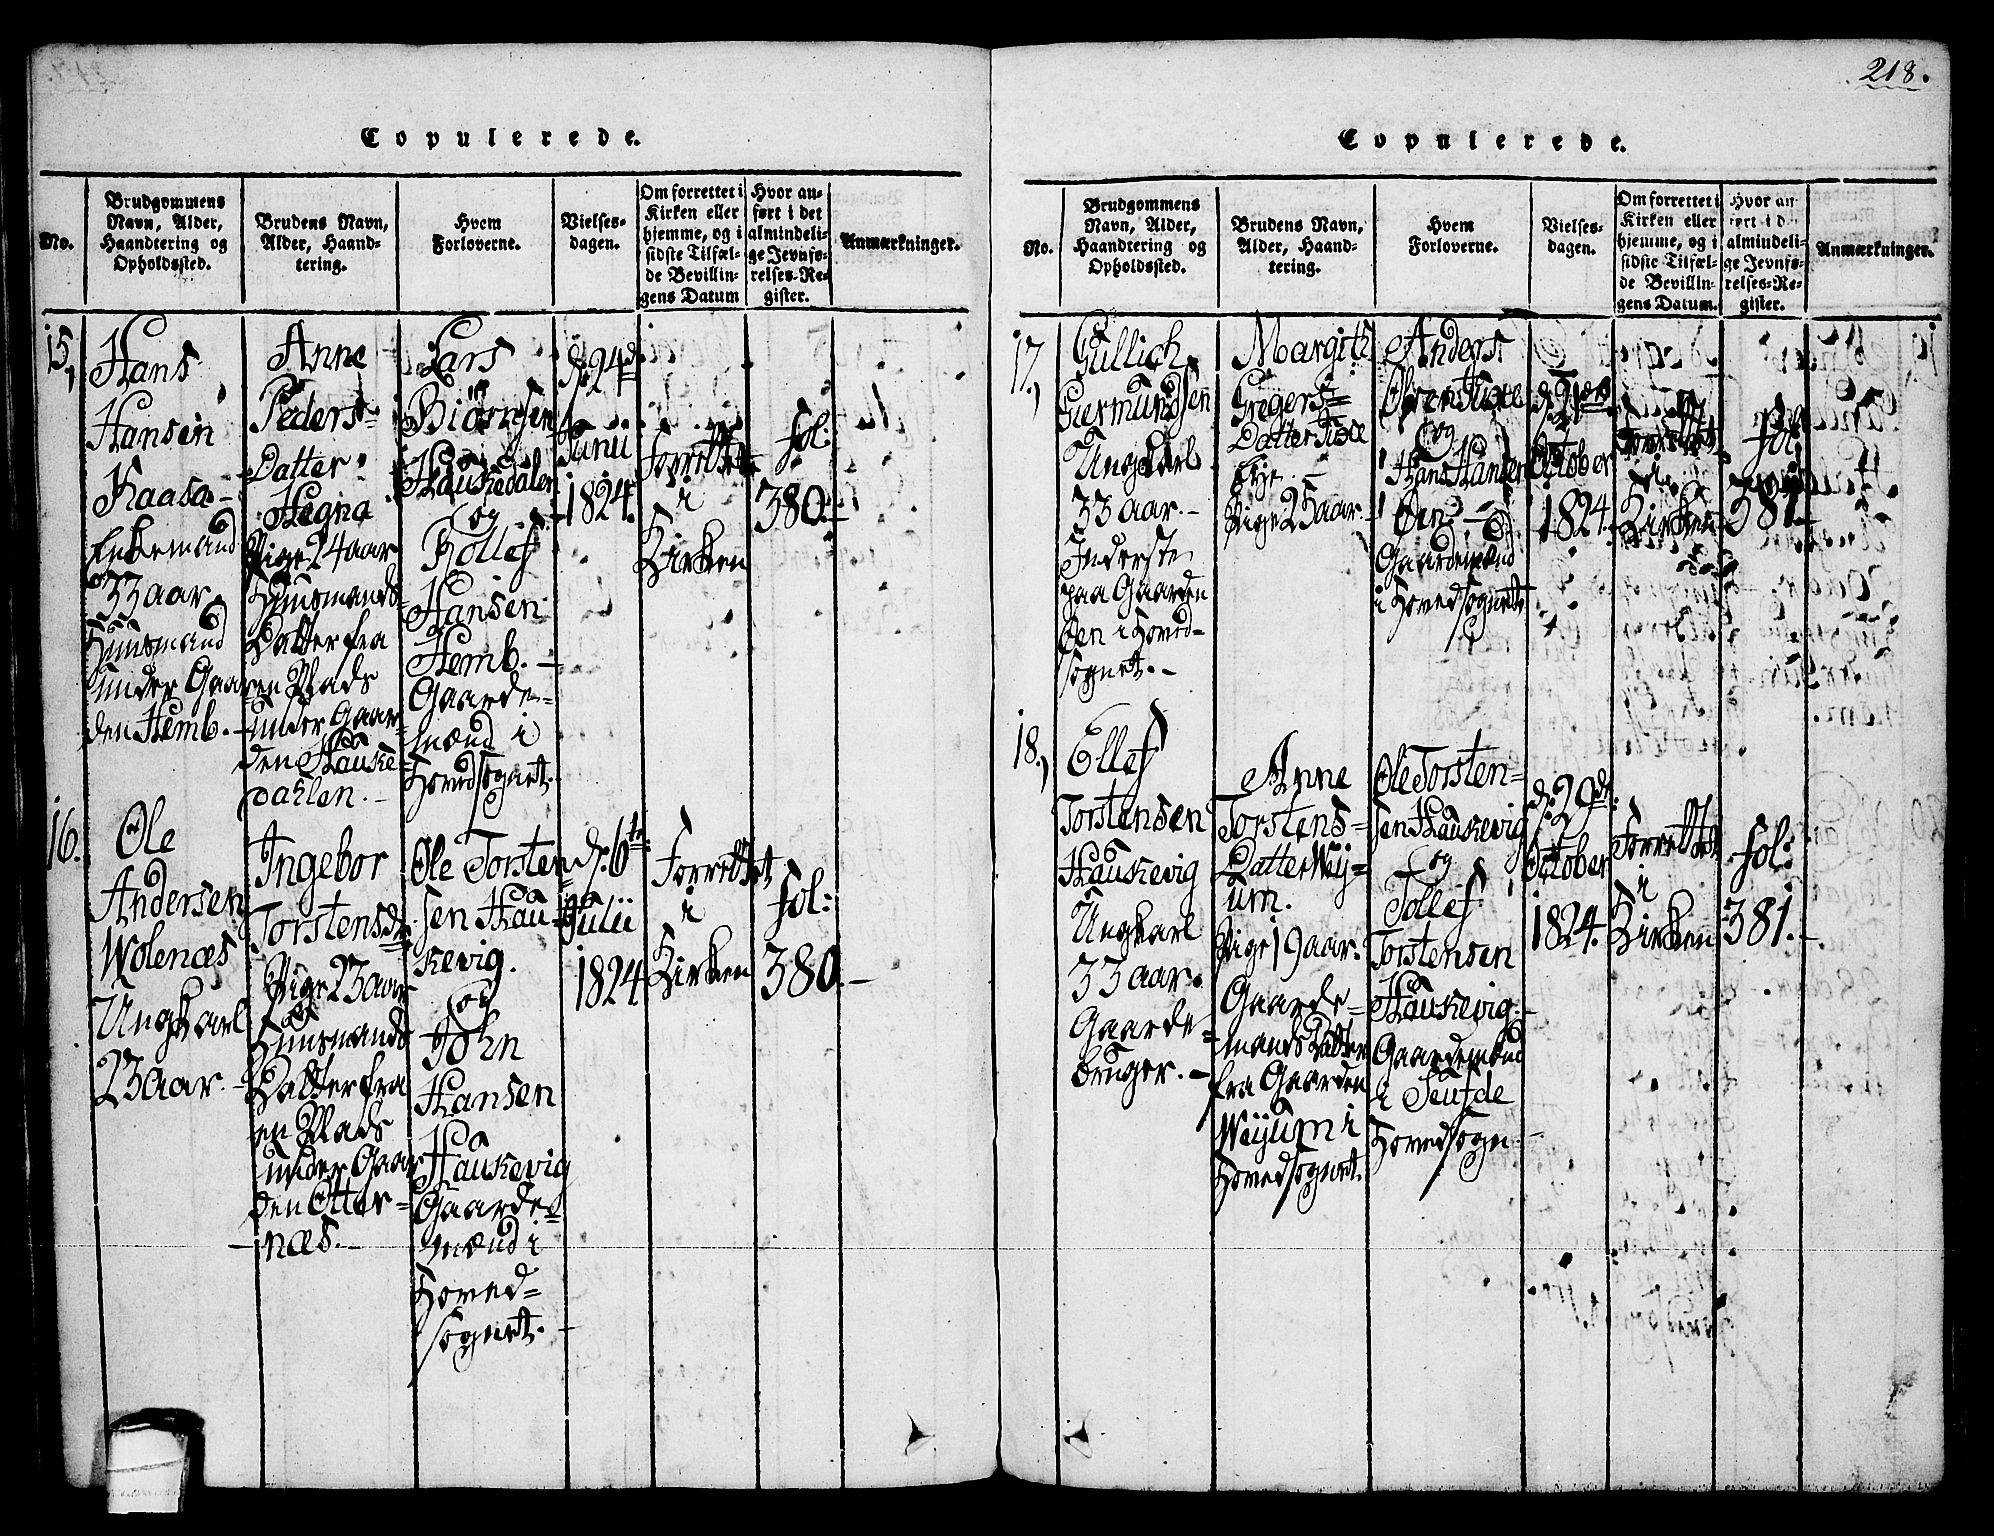 218.
Copulerede.
No.
Brudgommens
Navn, Alder,
Haandtering og
Opholdssted.
Brudens Navn,
Alder, Haand-
tering.
Hvem
Forloverne.
Vielses-
dagen.
Om forrettet i
Kirken eller
hjemme, og i
sidste Tilfæl-
de Bevillin-
gens Datum
Hvor an-
ført i det
almindeli-
ge Jevnfø-
relses-Re-
gister.
Anmærkninger.
15,
Hans
Hansen
Kaasa-
Enkemand
33 aar.
Huusmand
under Gaar
den Hemb.-
Anne
Peders-
Datter
Hegna
Pige 24 aar
Huusmands-
Datter fra
en Plads
under Gaar-
den Hauke-
dahlen.-
Lars
Biörnsen
Haukedalen
og
Rollef
Hansen
Hemb.-
Gaarde-
mænd i
Hovedsognet.
d. 24d
Junii
1824.
Forrettet
i
Kirken
fol:
380.-
16.
Ole
Andersen
Wolenæs
Ungkarl
23 aar.-
Ingebor
Torstensd.
Pige 23 aar
Huusmands
Datter fra
en Plads
under Gaar
den Otter-
næs.-
Ole Torsten-
sen Hau-
kevig.
og
John
Hansen
Haukevig
Gaarde-
mænd i
Hoved-
sognet.-
d. 6te
Julii
1824
Forrettet
i
Kirken
fol:
380.-
Copulerede.
No.
Brudgommens
Navn, Alder,
Haandtering og
Opholdssted.
Brudens Navn,
Alder, Haand-
tering.
Hvem
Forloverne.
Vielses-
dagen.
Om forrettet i
Kirken eller
hjemme, og i
sidste Tilfæl-
de Bevillin-
gens Datum.
Hvor an
ført i d
almindeli-
ge Jevnfø-
relses-Re-
gister.
Anmærkninger.
17.,
Gullich
Giermundsen
Ungkarl
33 aar.-
Inderste
paa Gaarden
Öen i Hoved-
sognet.-
Margith
Gregers-
Datter
Pige 25 aar.-
Anders
og
Hans Hansen
Öen.-
Gaardemænd
i Hovedsognet
d. 21de
October
1824.
Forrettet
i
Kirken
fol
381.-
18.,
Ellef
Torstensen
Haukevig
Ungkarl
33 aar.
Gaarde-
bruger.-
Anne
Torstens-
Datter Weij-
um.
Pige 19 aar.
Gaarde-
mands Datter
fra Gaarden
Weijum i
Hovedsognet.
Ole Torsten-
sen Haukevig
og
Tollef
Torstensen
Haukevig.-
Gaardemænd
i Seufde
Hovedsogn.-
d. 29de
October
1824.
Forrettet
i
Kirken
fol:
381.-